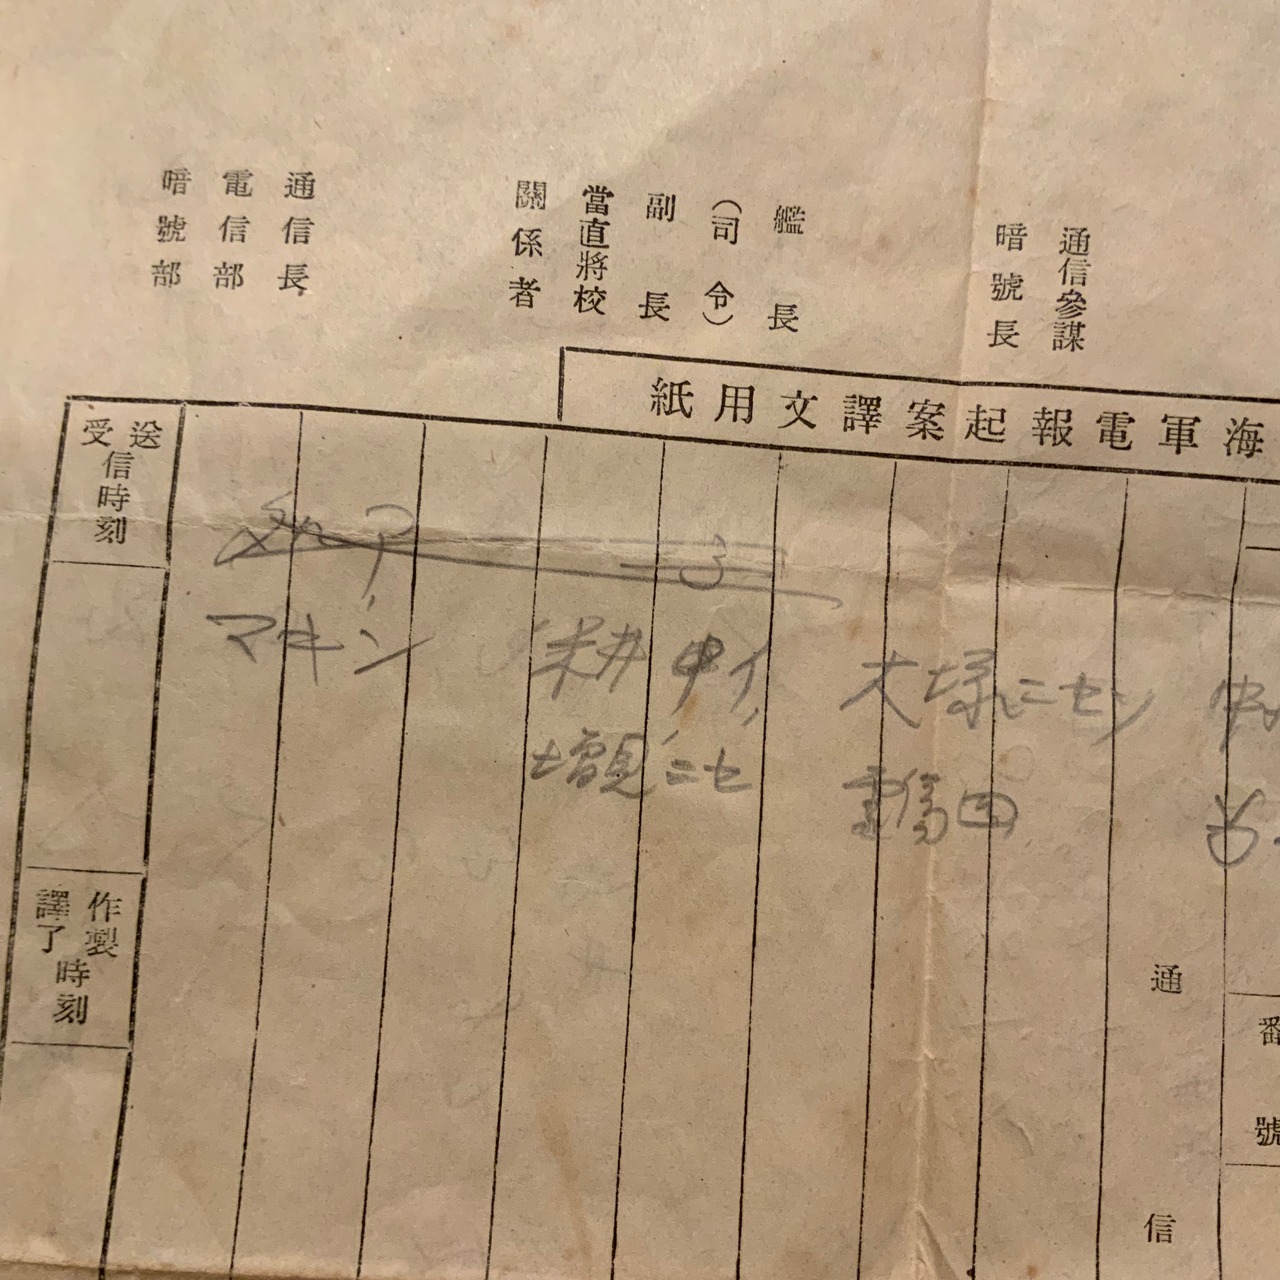 通信參謀
暗號長
艦長
(司令)
副長
當直將校
關係者
通信長
電信部
暗號部
海軍電報起案譯文用紙
送受信時刻
マキン
耕 中イ、
大塚ニセン
増見ニセ
作製譯了時刻
通信
番號